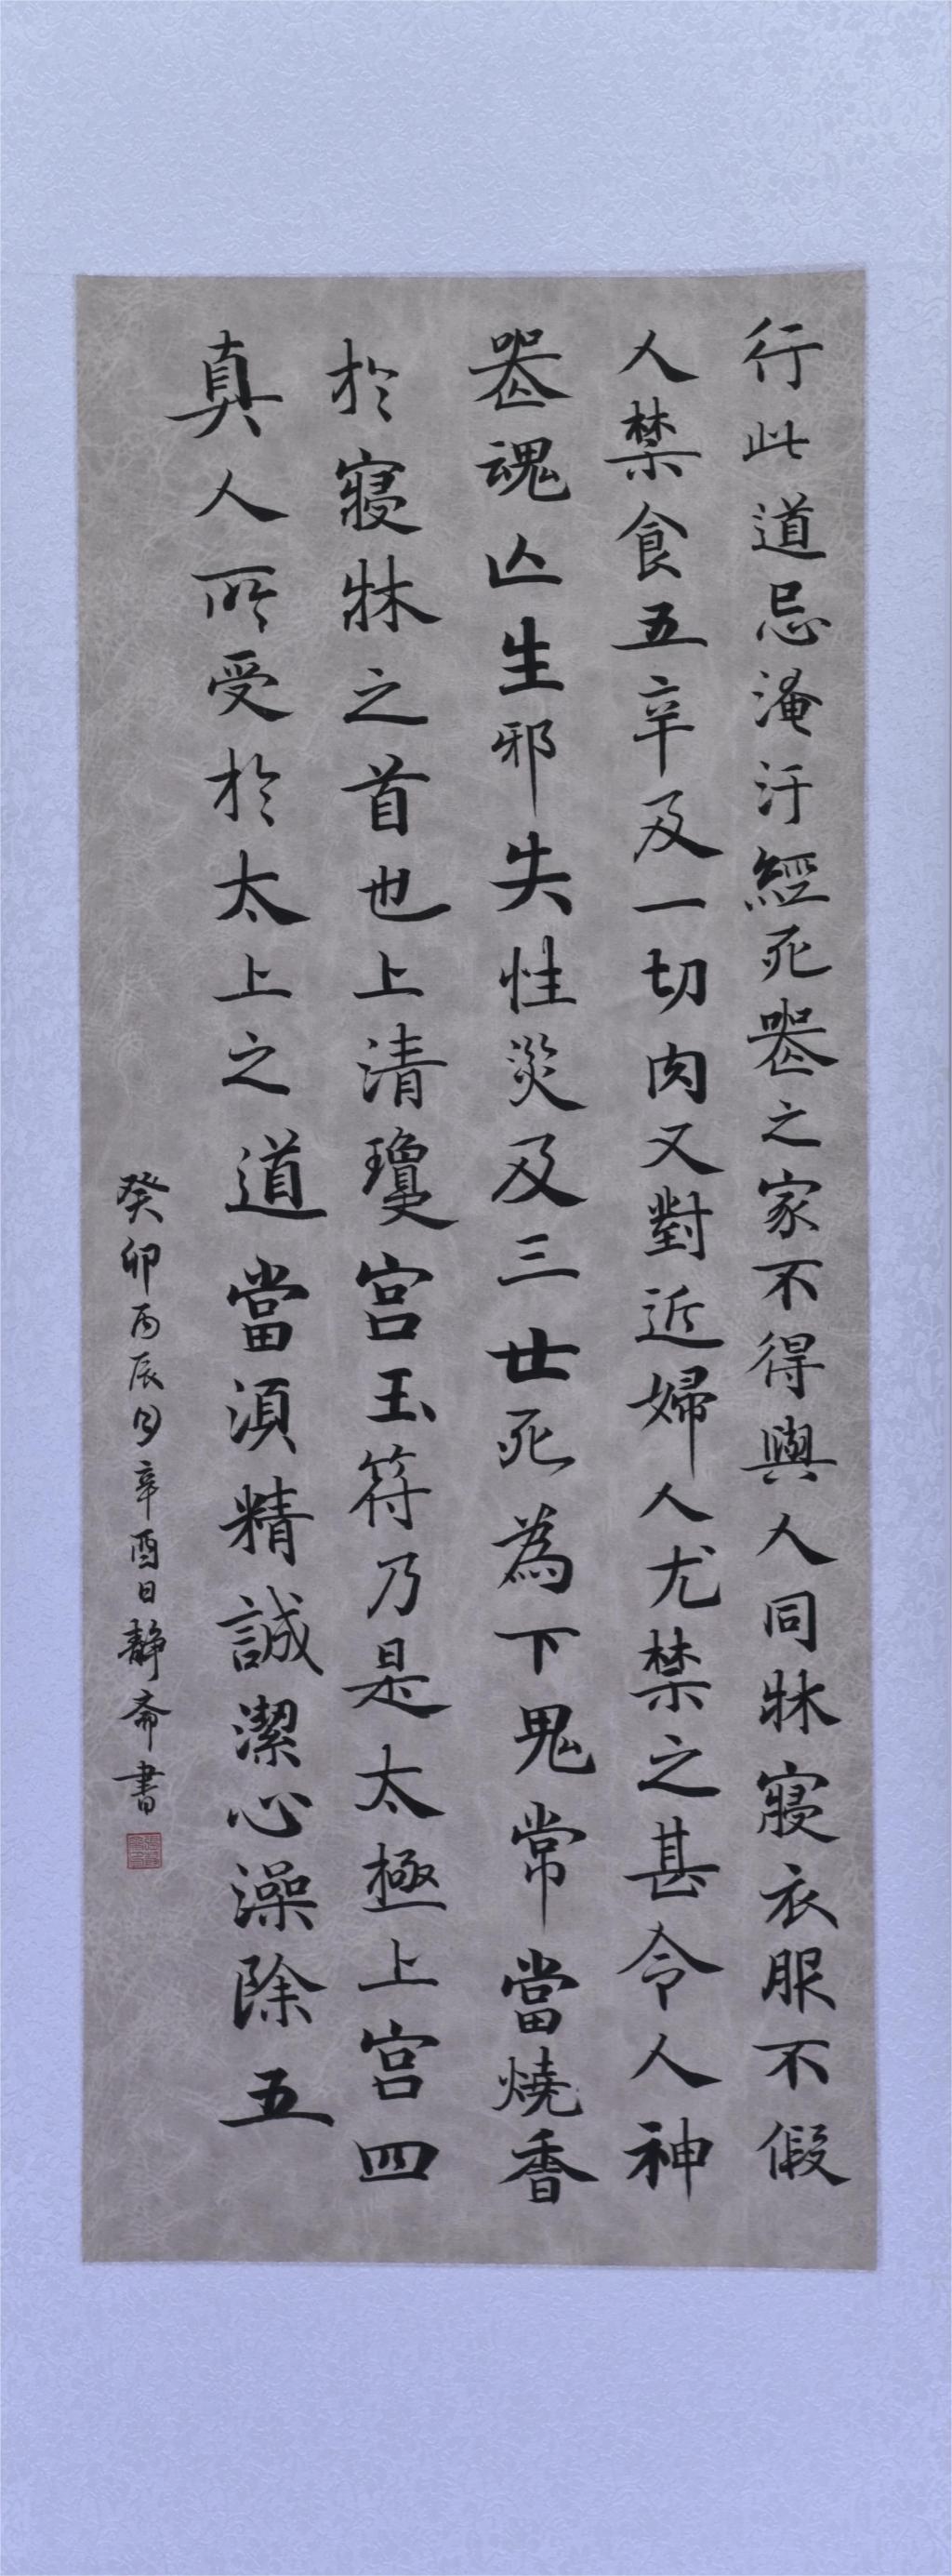 行此道忌淹汙經死喪之家不得與人同牀寢衣服不假
人禁食五辛及一切肉又對近婦人尤禁之甚令人神
喪魂亡生邪失性災及三世死為下鬼常當燒香
於寢牀之首也上清瓊宮玉符乃是太極上宮四
真人所受於太上之道當須精誠潔心澡除五
癸卯丙辰月辛酉日靜斎書